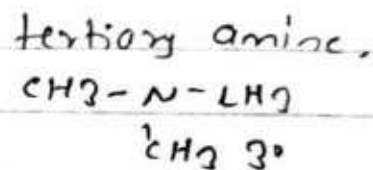 tertiary amine.
CH3 - N - CH3
CH3 3°